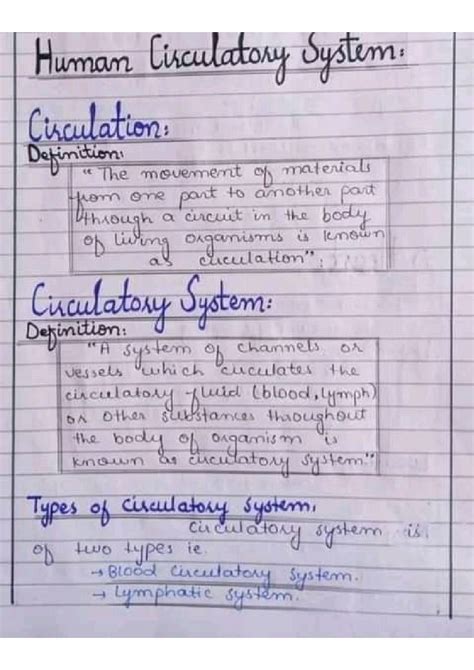 Human Circulatory System:
Circulation:
Definition:
"The movement of materials
from one part to another part
through a circuit in the body
of living organisms is known
as circulation".
Circulatory System:
Definition:
"A system of channels or
vessels which circulates the
circulatory fluid (blood, lymph)
or other substances throughout
the body of organism is
known as circulatory system."
Types of circulatory system,
Circulatory system is
of two types ie.
→ Blood circulatory system.
→ Lymphatic system.